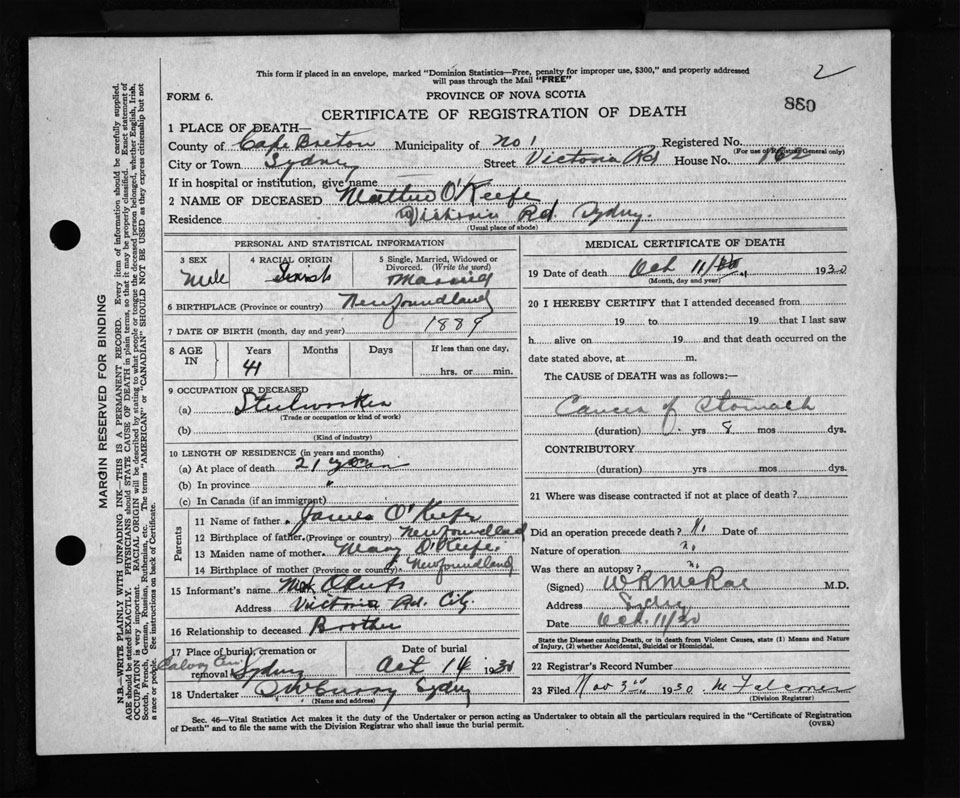 This form if placed in an envelope, marked "Dominion Statistics—Free, penalty for improper use, $300," and properly addressed
will pass through the Mail "FREE"
2
FORM 6.
PROVINCE OF NOVA SCOTIA
880
CERTIFICATE OF REGISTRATION OF DEATH
1 PLACE OF DEATH—
County of Cape Breton Municipality of No 1 Registered No.
(For use of Registrar General only)
City or Town Sydney Street Victoria Rd House No. 162
If in hospital or institution, give name
2 NAME OF DECEASED Matthew O'Keefe
Residence Victoria Rd. Sydney.
(Usual place of abode)
PERSONAL AND STATISTICAL INFORMATION
3 SEX
4 RACIAL ORIGIN
5 Single, Married, Widowed or
Divorced. (Write the word)
Male Married
6 BIRTHPLACE (Province or country) Newfoundland
7 DATE OF BIRTH (month, day and year) 1889
8 AGE IN
Years Months Days If less than one day,
41 hrs. or min.
9 OCCUPATION OF DECEASED
(a) Steelworker
(Trade or occupation or kind of work)
(b)
(Kind of industry)
10 LENGTH OF RESIDENCE (in years and months)
(a) At place of death 21 years
(b) In province "
(c) In Canada (if an immigrant)
Parents
11 Name of father James O'Keefe
12 Birthplace of father (Province or country) Newfoundland
13 Maiden name of mother Mary O'Keefe
14 Birthplace of mother (Province or country) Newfoundland
15 Informant's name O'Keefe
Address Victoria Rd. City.
16 Relationship to deceased Brother
17 Place of burial, cremation or
removal Sydney
Date of burial
Oct 14 1930
18 Undertaker Sydney
(Name and address)
MEDICAL CERTIFICATE OF DEATH
19 Date of death Oct 11/30 1930
(Month, day and year)
20 I HEREBY CERTIFY that I attended deceased from
19 to 19 that I last saw
h alive on 19 and that death occurred on the
date stated above, at m.
The CAUSE of DEATH was as follows:—
Cancer of Stomach
(duration) yrs 8 mos dys.
CONTRIBUTORY
(duration) yrs mos dys.
21 Where was disease contracted if not at place of death?
Did an operation precede death? No Date of
Nature of operation no
Was there an autopsy? no
(Signed) W R McRae M.D.
Address Sydney
Date Oct. 11/30
State the Disease causing Death, or in death from Violent Causes, state (1) Means and Nature
of Injury, (2) whether Accidental, Suicidal or Homicidal.
22 Registrar's Record Number
23 Filed Nov 3rd 1930
(Division Registrar)
Sec. 46—Vital Statistics Act makes it the duty of the Undertaker or person acting as Undertaker to obtain all the particulars required in the "Certificate of Registration
of Death" and to file the same with the Division Registrar who shall issue the burial permit.
(OVER)
MARGIN RESERVED FOR BINDING
N.B.—WRITE PLAINLY WITH UNFADING INK—THIS IS A PERMANENT RECORD. Every item of information should be carefully supplied.
AGE should be stated EXACTLY. PHYSICIANS should STATE CAUSE OF DEATH in plain terms, so that it may be properly classified. Exact statement of
OCCUPATION is very important. RACIAL ORIGIN will be described by stating to what people or tongue the deceased person belonged, whether English, Irish,
Scotch, French, German, Russian, Ruthenian, etc. The terms "AMERICAN" or "CANADIAN" SHOULD NOT BE USED as they express citizenship but not
a race or people. See instructions on back of Certificate.